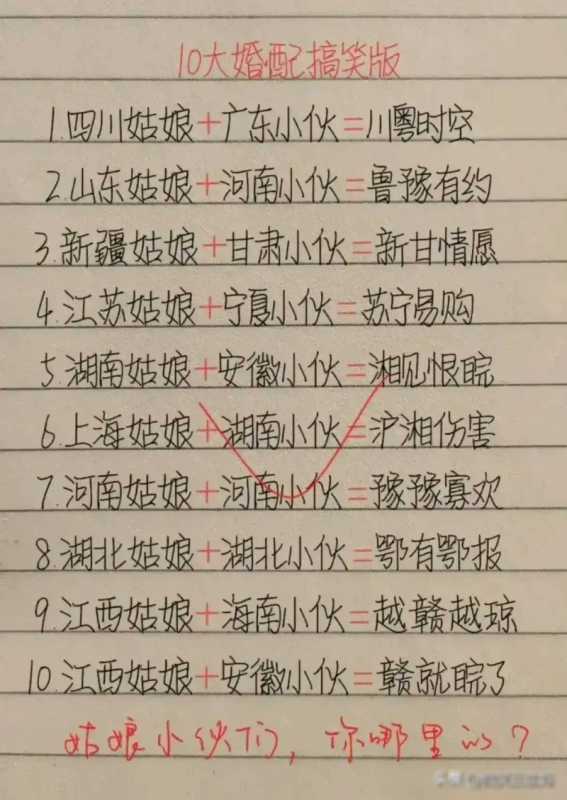 10大婚配搞笑版
1.四川姑娘+广东小伙=川粤时空
2.山东姑娘+河南小伙=鲁豫有约
3.新疆姑娘+甘肃小伙=新甘情愿
4.江苏姑娘+宁夏小伙=苏宁易购
5.湖南姑娘+安徽小伙=湘见恨皖
6.上海姑娘+湖南小伙=沪湘伤害
7.河南姑娘+河南小伙=豫豫寡欢
8.湖北姑娘+湖北小伙=鄂有鄂报
9.江西姑娘+海南小伙=越赣越琼
10.江西姑娘+安徽小伙=赣就皖了
姑娘小伙们,你哪里的?